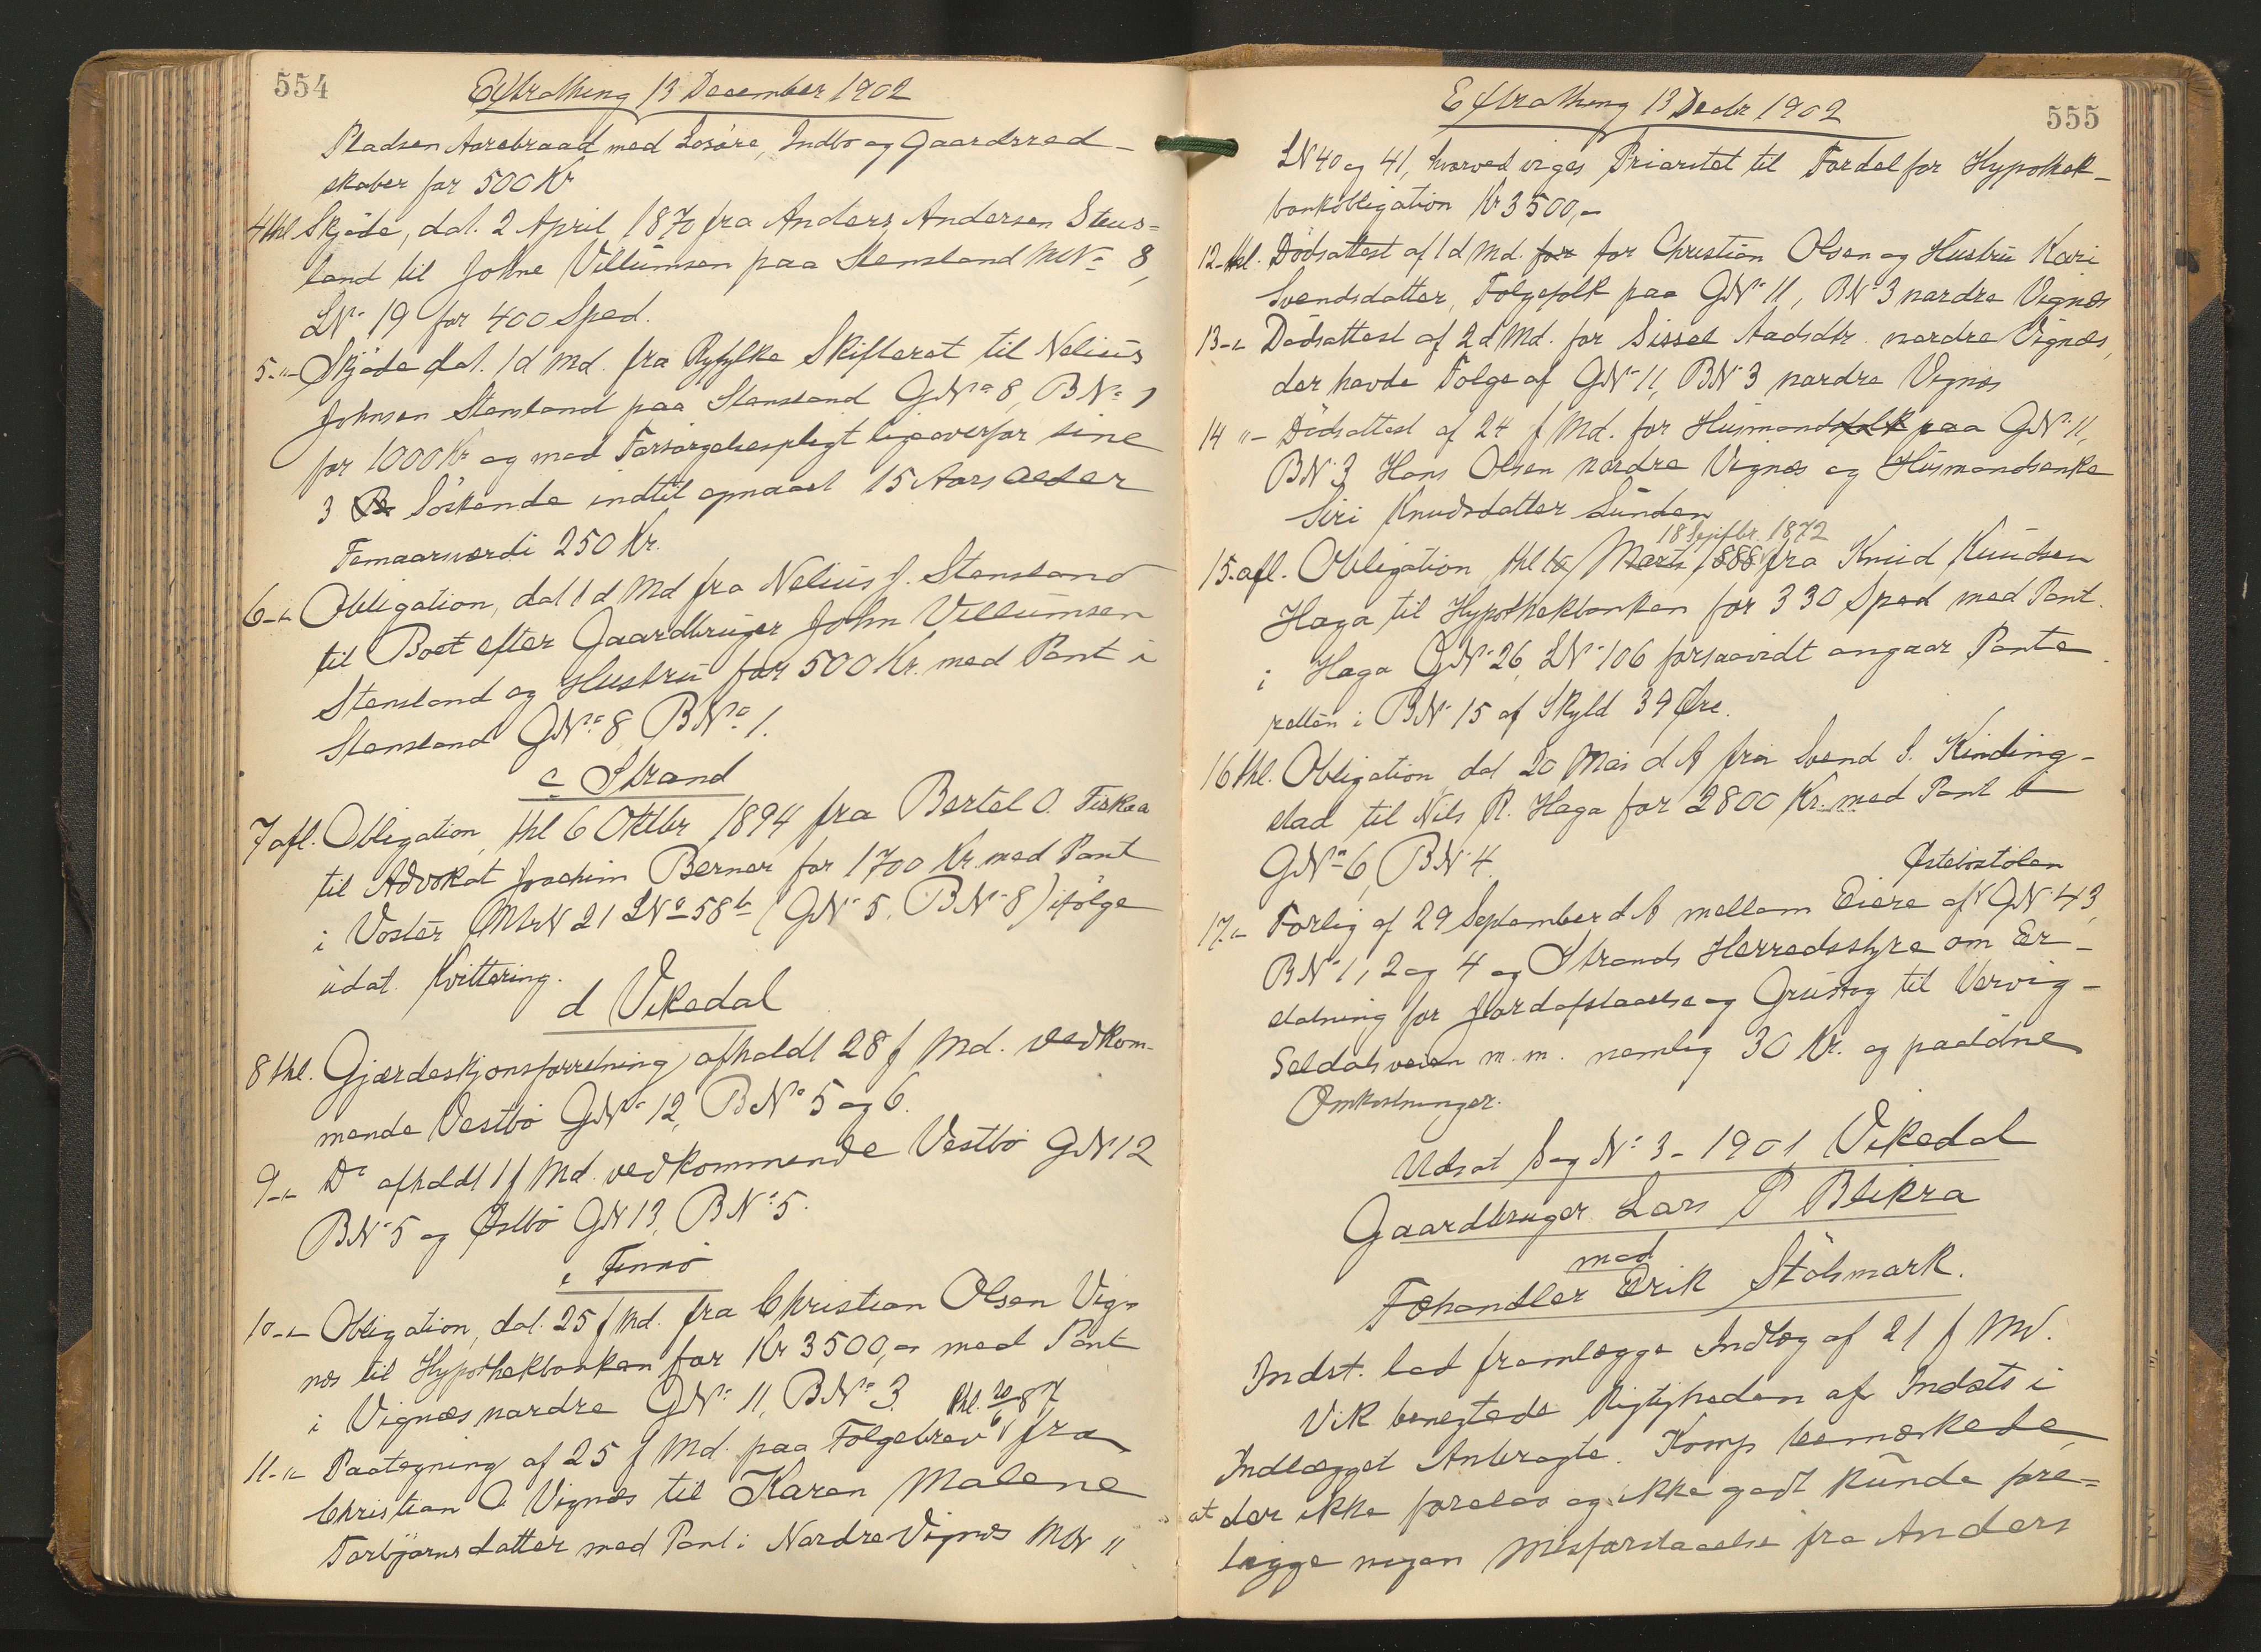 554
Extrathing 13 December 1902
Pladsen Aarebraat med Losøre, Indbo og Gaardsred-
skaber for 500 Kr
4 thl Skjøde, dat. 2 April 1870 fra Anders Andersen Stens-
land til Johne Villumsen paa Stensland MNo 8,
LNo 19 for 400 Spd.
5 -"- Skjøde dat. 1 d Md. fra Ryfylke Skifteret til Nelius
Johnsen Stensland paa Stensland GNo 8, BNo 1
for 1000 Kr og med Forsørgelsespligt ligeoverfor sine
3 Søskende indtil opnaaet 15 Aars Alder
Femaarsværdi 250 Kr.
6 -"- Obligation, dat 1 d Md fra Nelius J. Stensland
til Boet efter Gaardbruger John Villumsen
Stensland og Hustru for 500 Kr. med Pant i
Stensland GNo 8 BNo 1.
c Strand
7 afl. Obligation, thl 6 Oktbr 1894 fra Bertel O. Fiskaa
til Advokat Joachim Berner for 1700 Kr. med Pant
i Voster MtrN 21 LNo 58b (GN 5, BN 8) ifølge
udat. Kvittering.
d Vikedal
8 thl. Gjærdeskjønsforretning afholdt 28 f Md. vedkom-
mende Vestbø GNo 12, BNo 5 og 6.
9 -"- Do afholdt 1 f Md. vedkommende Vestbø GN 12
BN 5 og Østbø GN 13, BN 5.
e Finnø
10 -"- Obligation, dat. 25 f Md. fra Christian Olsen Vig-
næs til Hypothekbanken for Kr 3500,- med Pant
i Vignæs nordre GNo 11, BNo 3. thl. 20/6 87
11 -"- Paategning af 25 f Md. paa Følgebrev fra
Christian O Vignæs til Karen Malene
Torbjørnsdatter med Pant i Nordre Vignæs MN 11
555
Extrathing 13 Decbr 1902
LN 40 og 41, hvorved viges Prioritet til Fordel for Hypothek-
bankobligation Kr 3500,-
12 thl. Dødsattest af 1 d Md. for for Christian Olsen og Hustru Kari
Svendsdatter, Følgefolk paa GN 11, BN 3 nordre Vignæs
13 -"- Dødsattest af 2 d Md. for Sissel Aadsdtr. nordre Vignæs,
der havde Følge af GN 11, BN 3 nordre Vignæs
14 "- Dødsattest af 24 f Md. for Husmandsfolk paa GN 11,
BN 3 Hans Olsen nordre Vignæs og Husmandsenke
Siri Knudsdatter Sunden
18 Septbr. 1872
15. afl. Obligation, thl Marts 1888 fra Knud Knudsen
Haga til Hypothekbanken for 330 Spd med Pant.
i Haga GN 26, LN 106 forsaavidt angaar Pante
retten i BN 15 af Skyld 39 Øre.
16 thl. Obligation dat 20 Mai d A fra Svend S. Kinding-
stad til Nils R. Haga for 2800 Kr. med Pant i
GN 6, BN 4.
Østebøstølen
17 -"- Forlig af 29 September d A mellem Eiere af GN 43,
BN 1, 2 og 4 og Strands Herredsstyre om Er-
statning for Jordafstaaelse og Grustag til Vervig-
Seldalsveien m.m. nemlig 30 Kr. og paadømte
Omkostninger.
Udsat Sag No 3 - 1901 Vikedal
Gaardbruger Lars P Blikra
mod
Fæhandler Erik Stølsmark.
Indst. lod fremlægge Indlæg af 21 f Md.
Vik benegtede Rigtigheden af Indsts i
Indlægget Anbragte. Komp bemærkede,
at der ikke forelaa og ikke godt kunde fore=
ligge nogen Misforstaaelse fra Anders